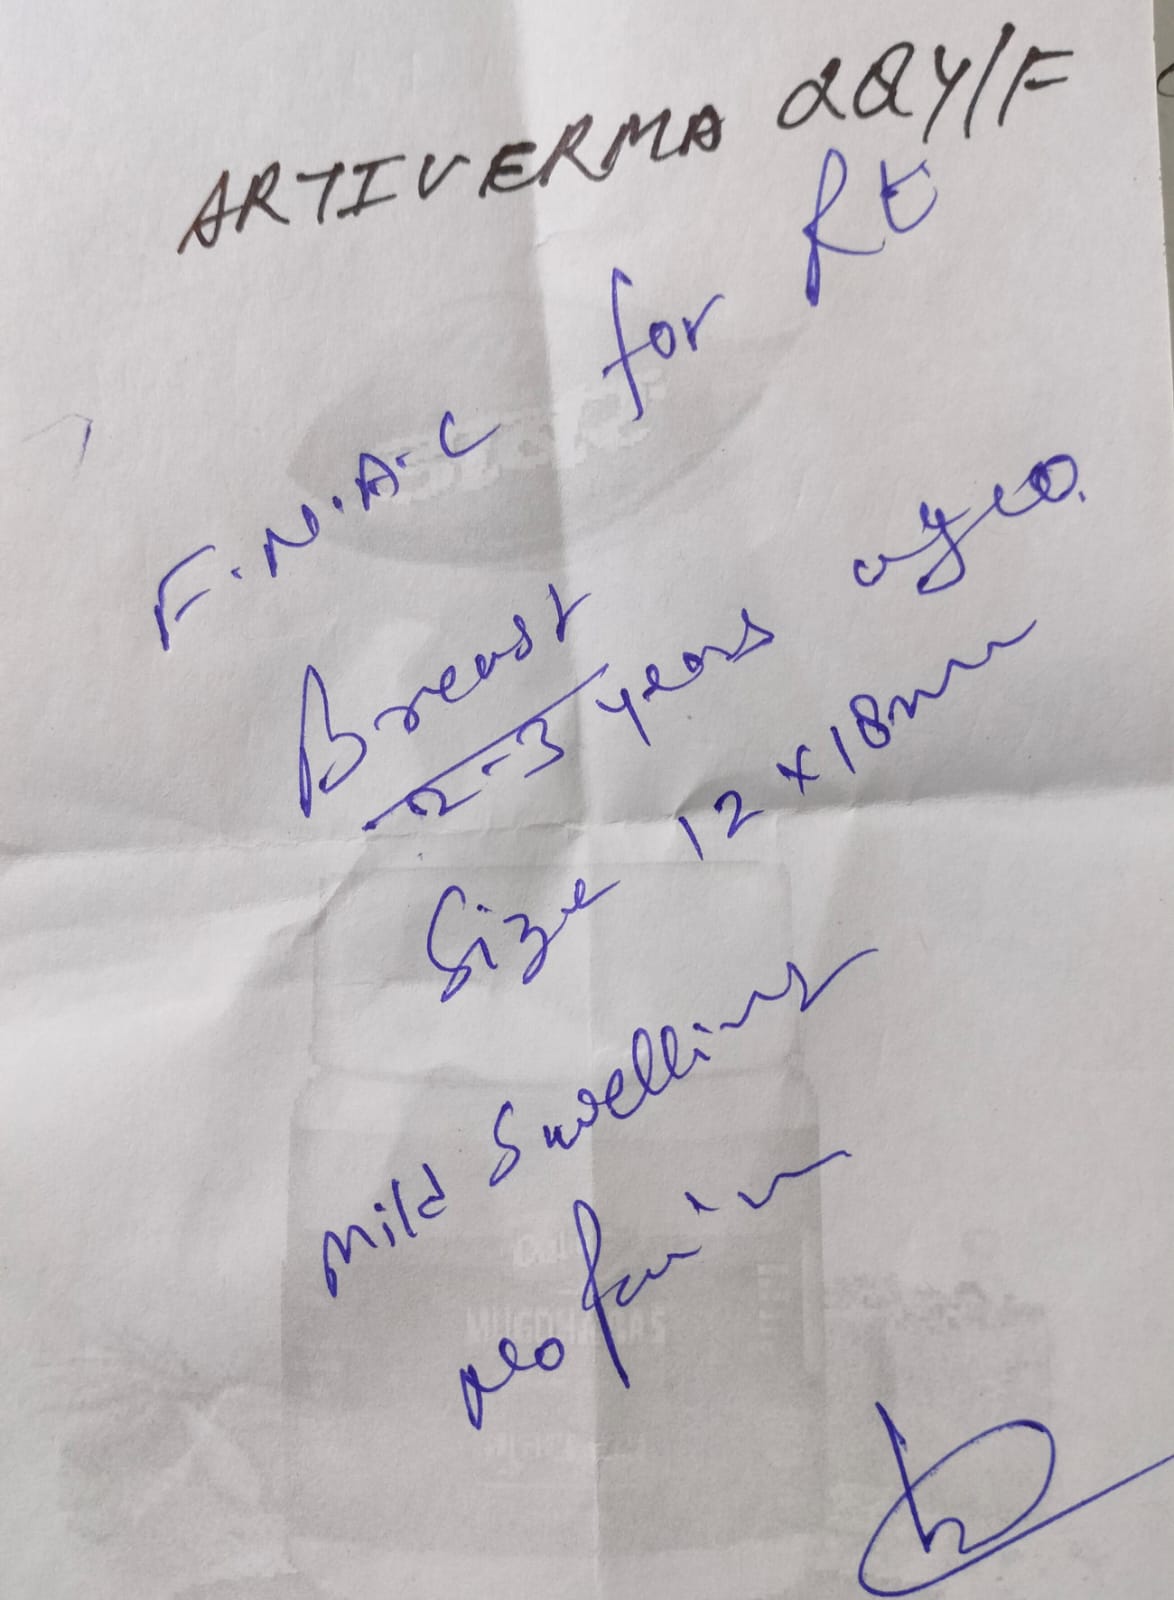 ARTI VERMA 28Y/F
F.N.A.C for Rt
Breast
2-3 years ago.
Size 12 x 18mm
Mild Swelling
No Pain